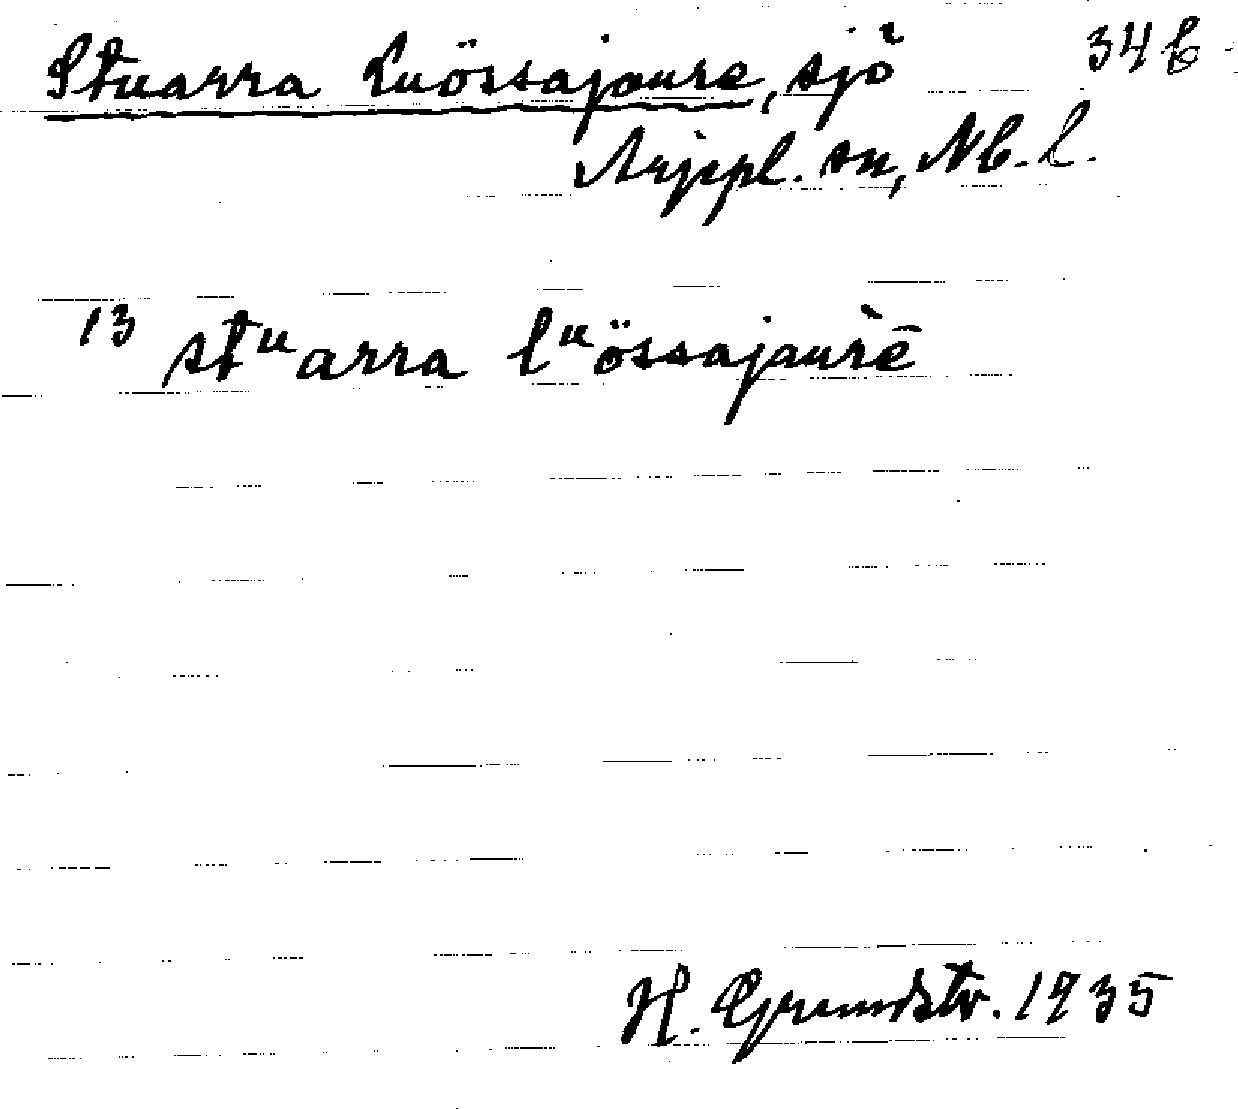 Stuarra Luössajaure, sjö 34 b
Arjepl. sn, Nb. l.
13 stᵘarra lᵘössajaùrē
H. Grundstr. 1935